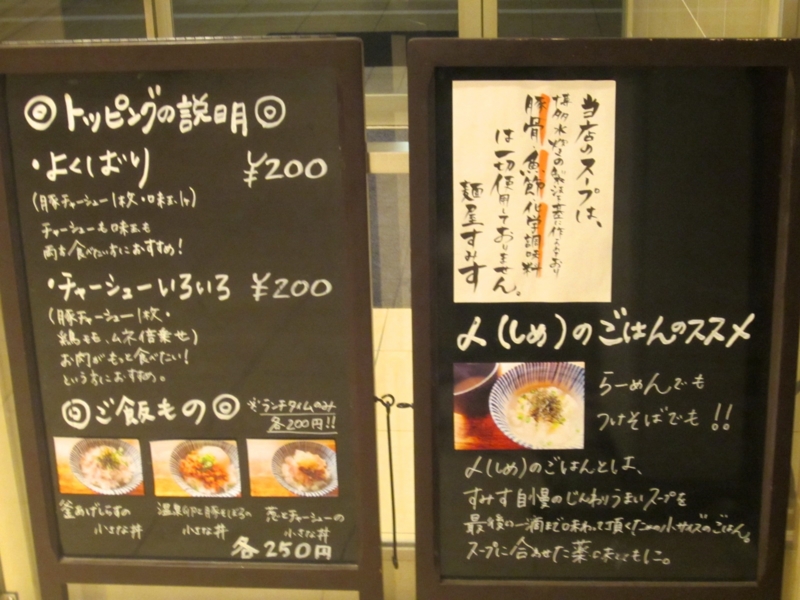 ◎トッピングの説明◎
・よくばり ¥200
(豚チャーシュー1枚・味玉1ヶ)
チャーシューも味玉も
両方食べたい方におすすめ!
・チャーシューいろいろ ¥200
(豚チャーシュー1枚・
鶏もも、ムネ倍乗せ)
お肉がもっと食べたい!
という方におすすめ。
◎ご飯もの◎
※ランチタイムのみ
各200円!!
釜あげしらすの
小さな丼
温泉卵と豚そぼろの
小さな丼
葱とチャーシューの
小さな丼
各250円
当店のスープは、
博多水炊きの製法を基に作っており
豚骨・魚節・化学調味料
は一切使用しておりません。
麺屋すみす
〆(しめ)のごはんのススメ
らーめんでも
つけそばでも!!
〆(しめ)のごはんとは、
すみす自慢のじんわりうまいスープを
最後の一滴まで味わって頂くための小サイズのごはん。
スープに合わせた薬味とともに。